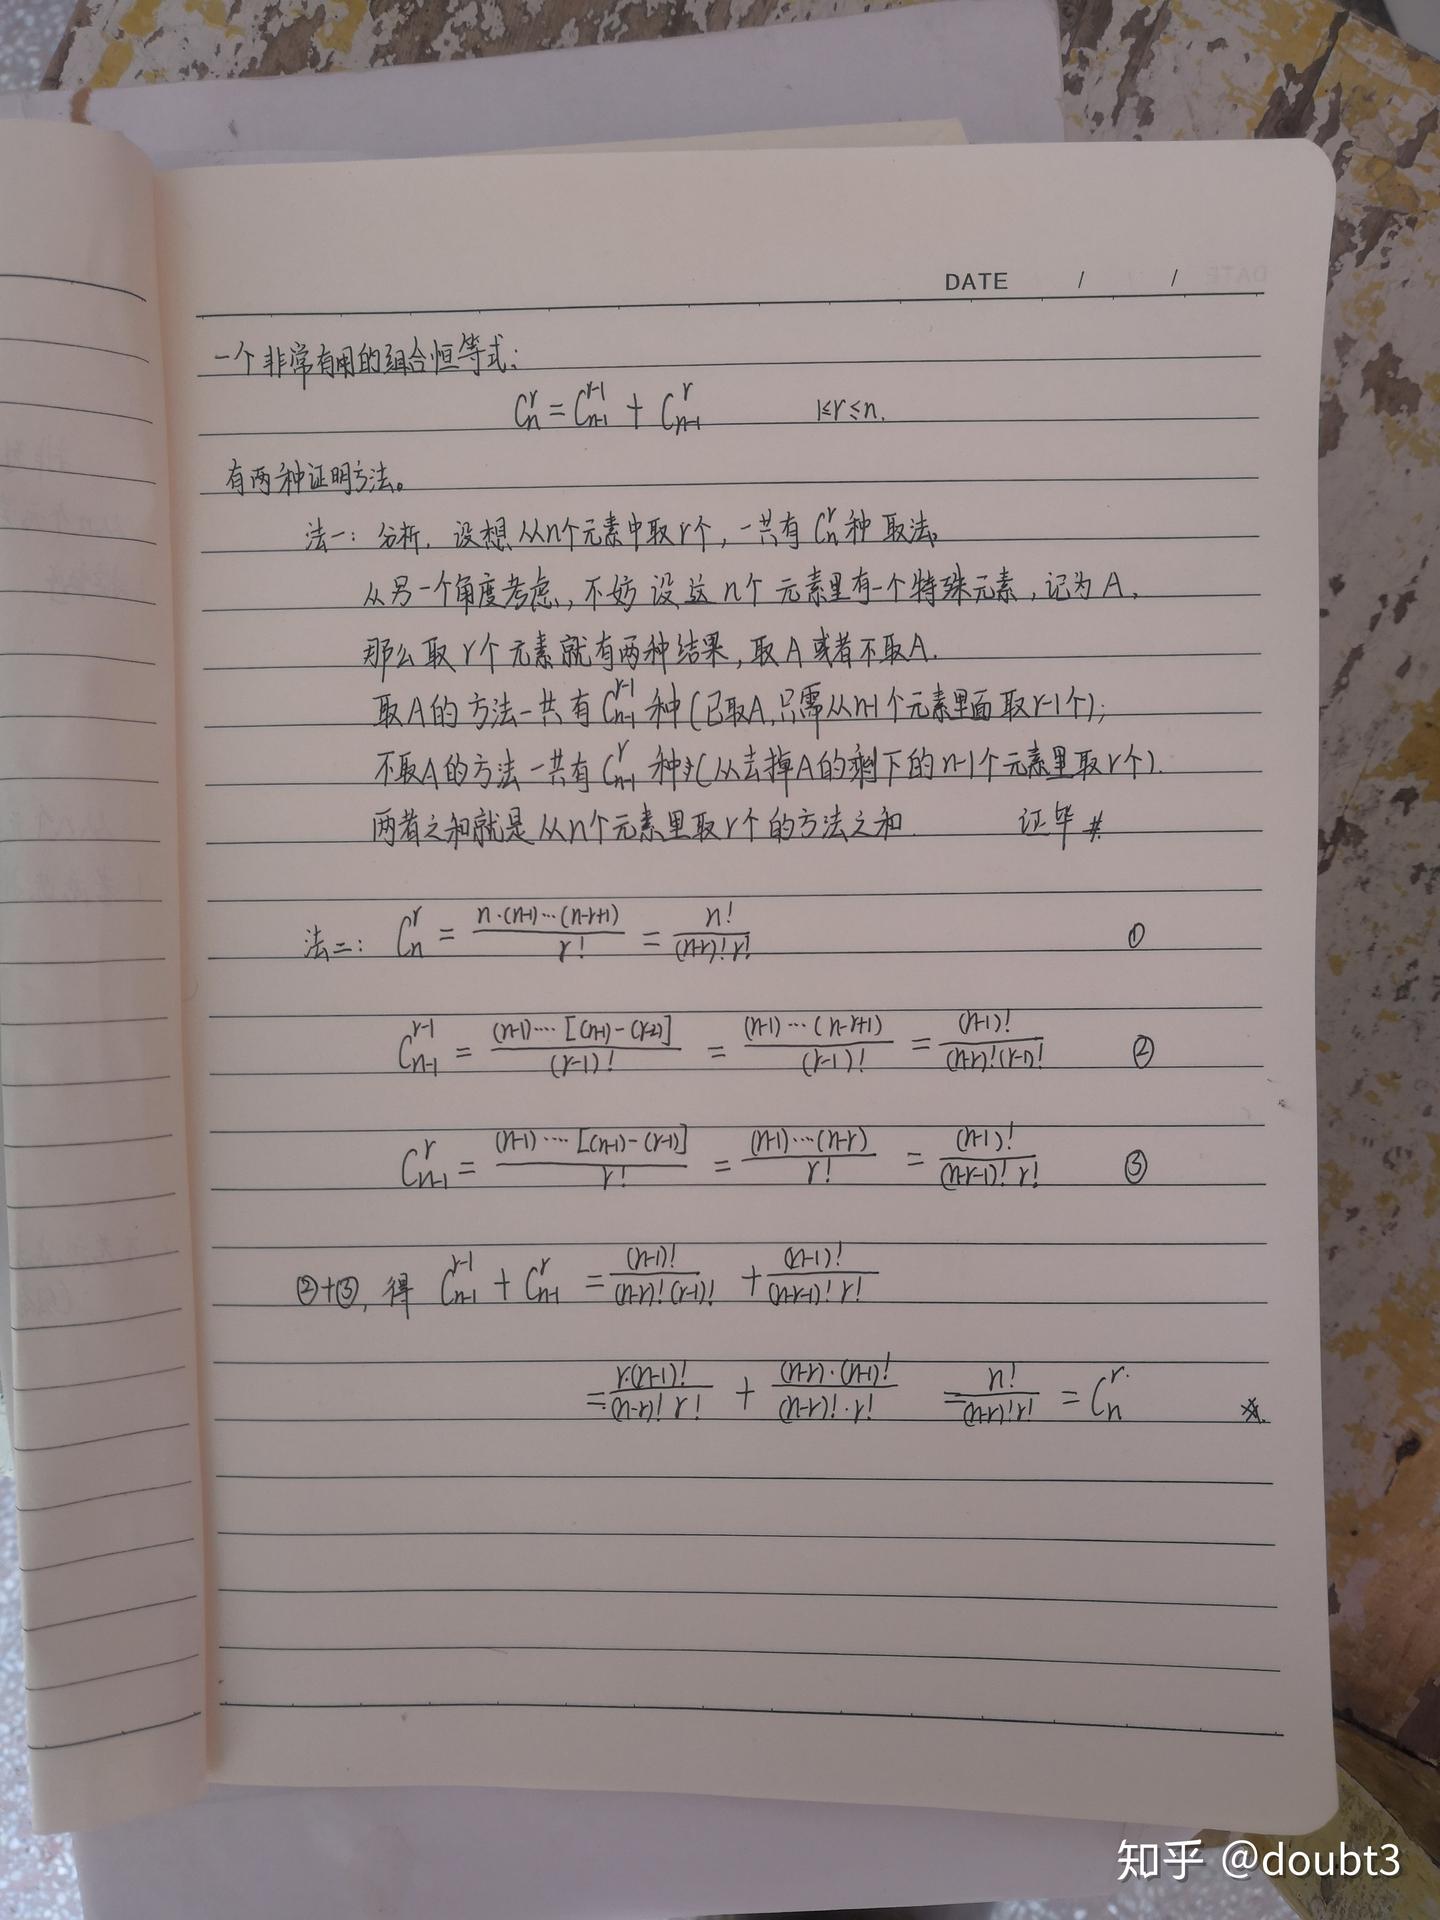 DATE / /
一个非常有用的组合恒等式:
C_n^r = C_{n-1}^{r-1} + C_{n-1}^r 1≤r≤n.
有两种证明方法。
法一: 分析. 设想从n个元素中取r个, 一共有 C_n^r 种取法。
从另一个角度考虑, 不妨设这n个元素里有一个特殊元素, 记为A,
那么取r个元素就有两种结果, 取A或者不取A.
取A的方法一共有 C_{n-1}^{r-1} 种(已取A, 只需从n-1个元素里面取r-1个);
不取A的方法一共有 C_{n-1}^r 种(从去掉A的剩下的n-1个元素里取r个).
两者之和就是从n个元素里取r个的方法之和. 证毕#
法二: C_n^r = \frac{n·(n-1)···(n-r+1)}{r!} = \frac{n!}{(n-r)! r!} ①
C_{n-1}^{r-1} = \frac{(n-1)····[(n-1)-(r-2)]}{(r-1)!} = \frac{(n-1)···(n-r+1)}{(r-1)!} = \frac{(n-1)!}{(n-r)!(r-1)!} ②
C_{n-1}^r = \frac{(n-1)····[(n-1)-(r-1)]}{r!} = \frac{(n-1)···(n-r)}{r!} = \frac{(n-1)!}{(n-r-1)! r!} ③
②+③, 得 C_{n-1}^{r-1} + C_{n-1}^r = \frac{(n-1)!}{(n-r)!(r-1)!} + \frac{(n-1)!}{(n-r-1)! r!}
= \frac{r·(n-1)!}{(n-r)! r!} + \frac{(n-r)·(n-1)!}{(n-r)!·r!} = \frac{n!}{(n-r)! r!} = C_n^r. #.
知乎 @doubt3